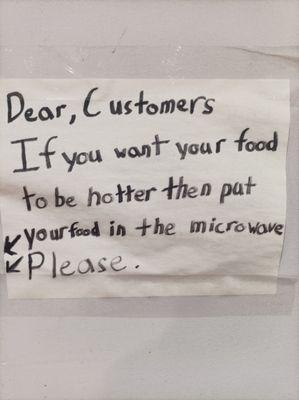 Dear, Customers
If you want your food
to be hotter then put
your food in the microwave
Please.